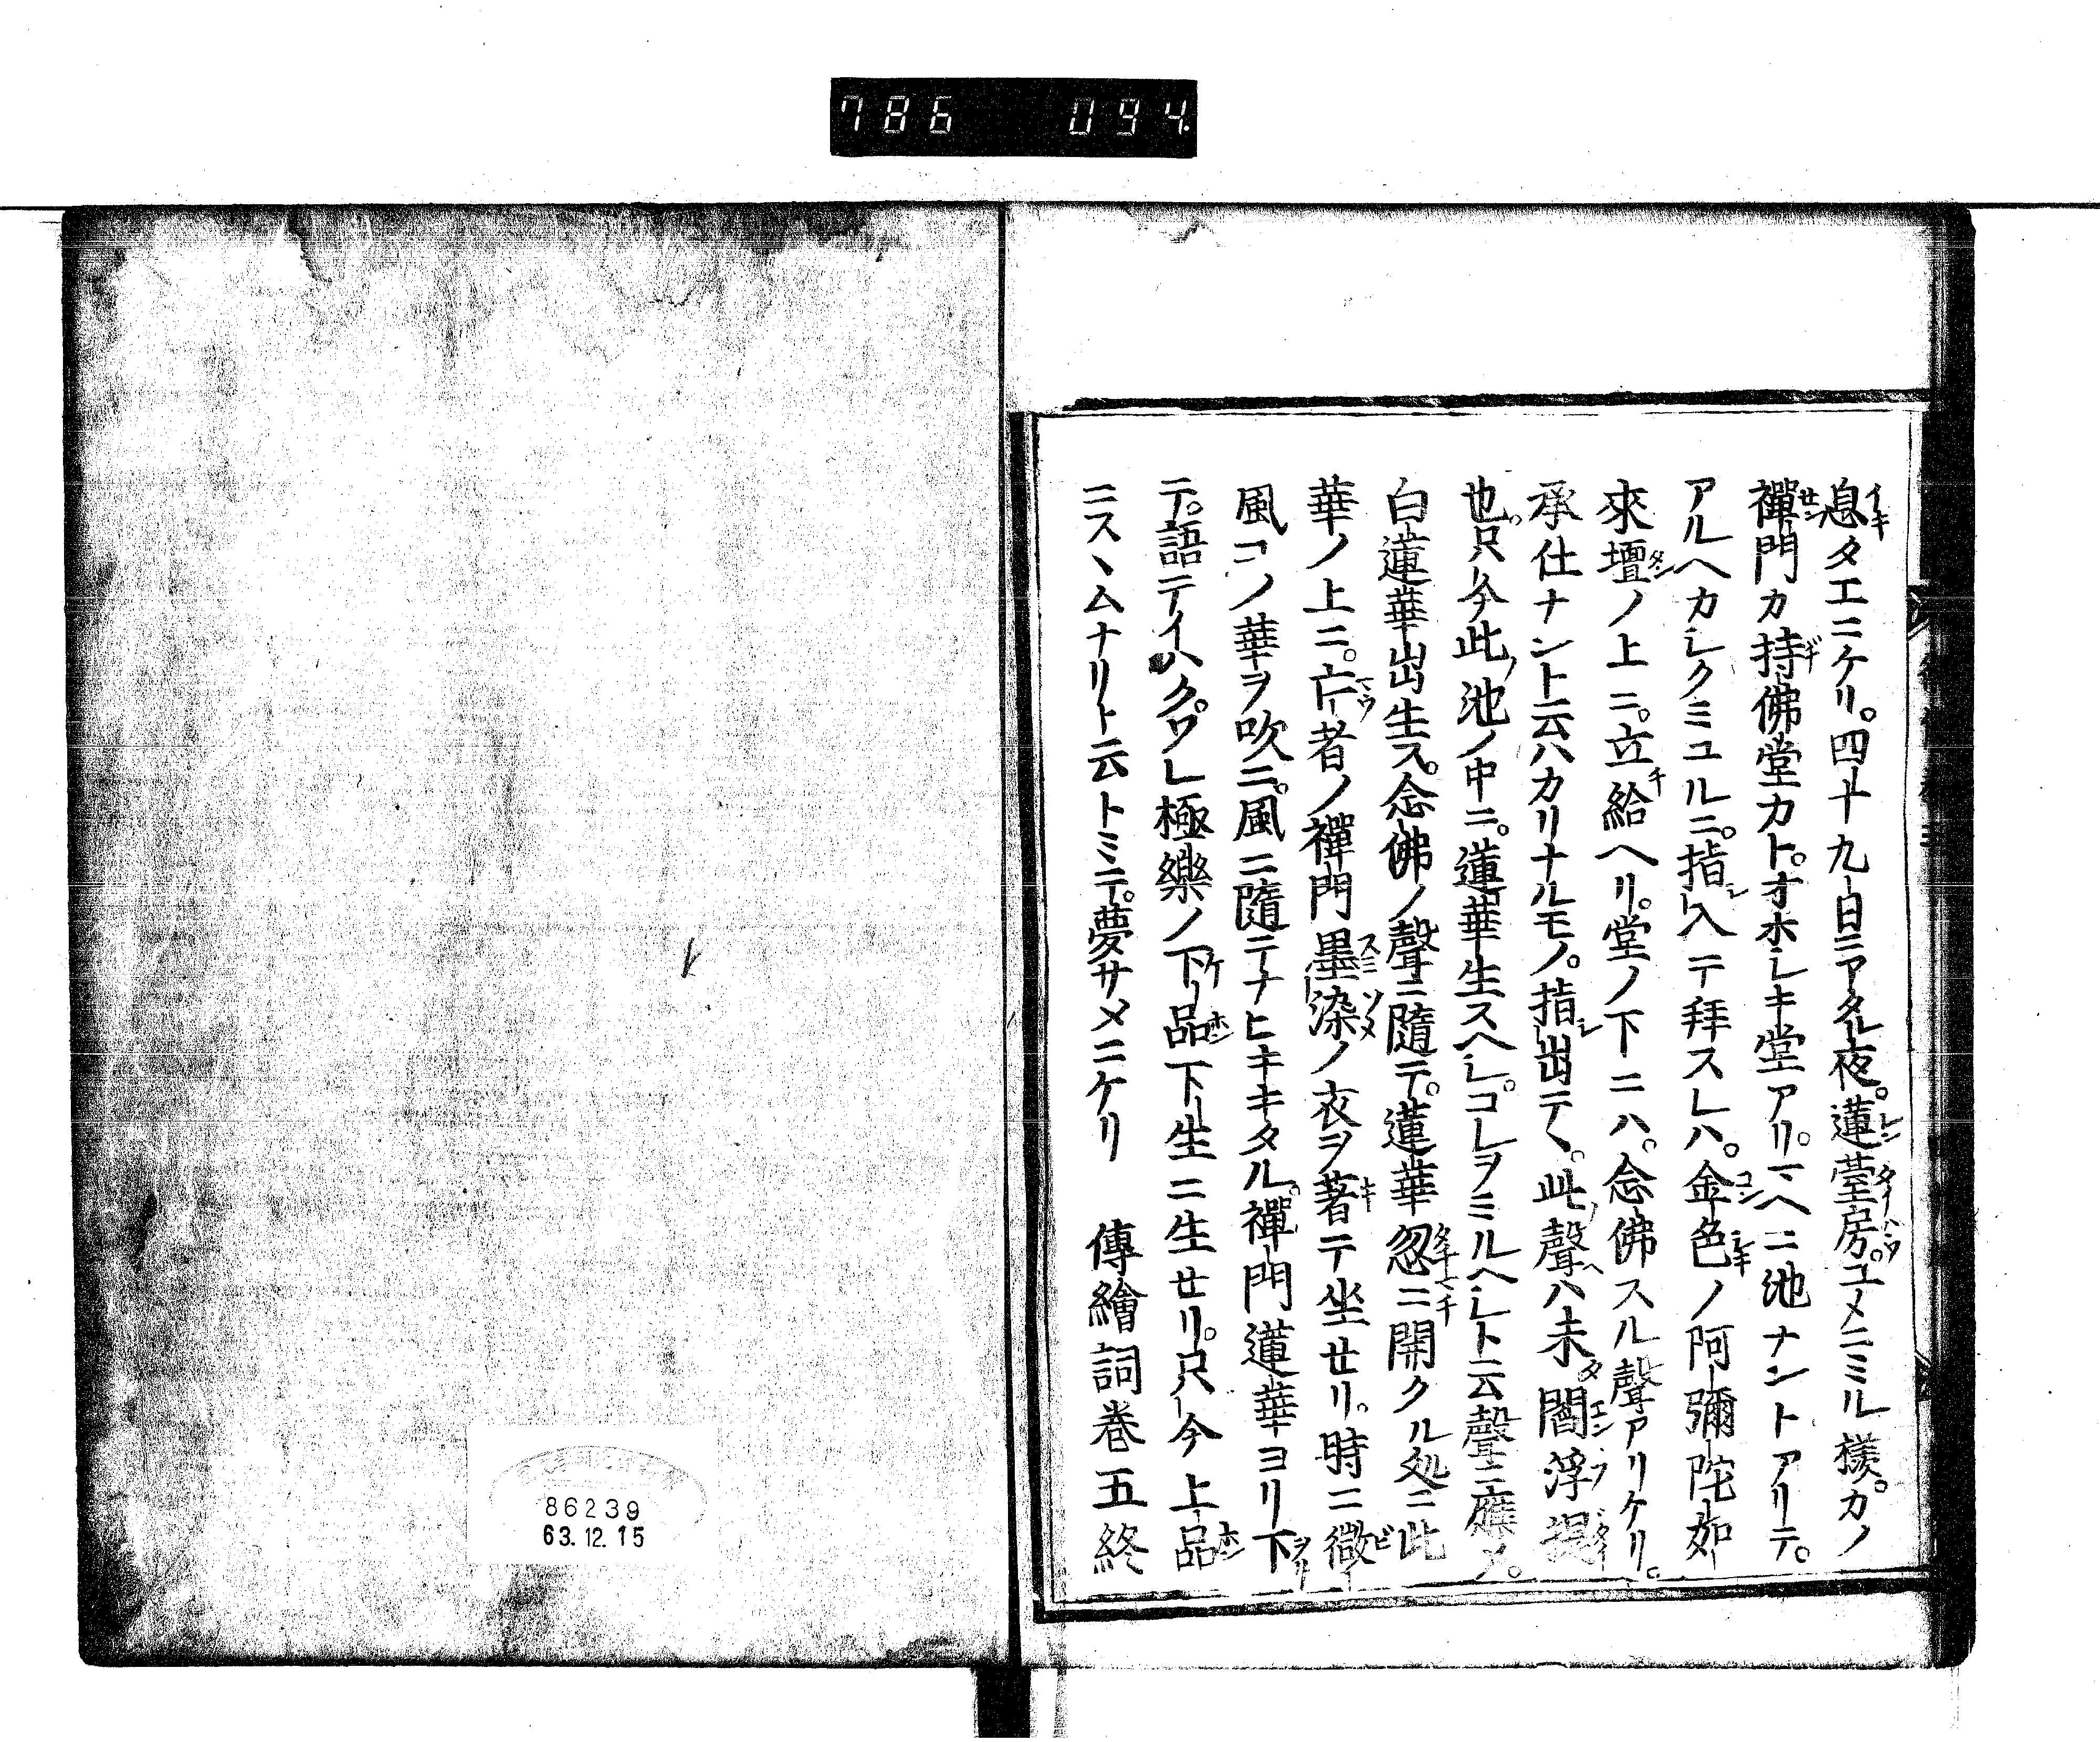 786 094
息タエニケリ。四十九日ニアタル夜。蓮臺房。ユメニミル樣。カノ
禪門カ持佛堂カト。オホシキ堂アリ。マヘニ池ナントアリテ。
アルヘカシクミユルニ。指入テ拜スレハ。金色ノ阿彌陀如
來壇ノ上ニ。立給ヘリ。堂ノ下ニハ。念佛スル聲アリケリ。
承仕ナント云ハカリナルモノ。指出テ〱。此聲ハ未閻浮提
也。只今此池ノ中ニ。蓮華生スヘシ。コレヲミルヘシト云聲ニ應メ。
白蓮華出生ス。念佛ノ聲ニ隨テ。蓮華忽ニ開クル処ニ此
華ノ上ニ。亡者ノ禪門墨染ノ衣ヲ著テ坐セリ。時ニ微
風コノ華ヲ吹ニ。風ニ隨テナヒキキタル。禪門蓮華ヨリ下
テ。語テイハク。ワレ極樂ノ下品下生ニ生セリ。只今上品
ニスヽムナリト云トミテ。夢サメニケリ　傳繪詞巻五終
86239
63.12.15